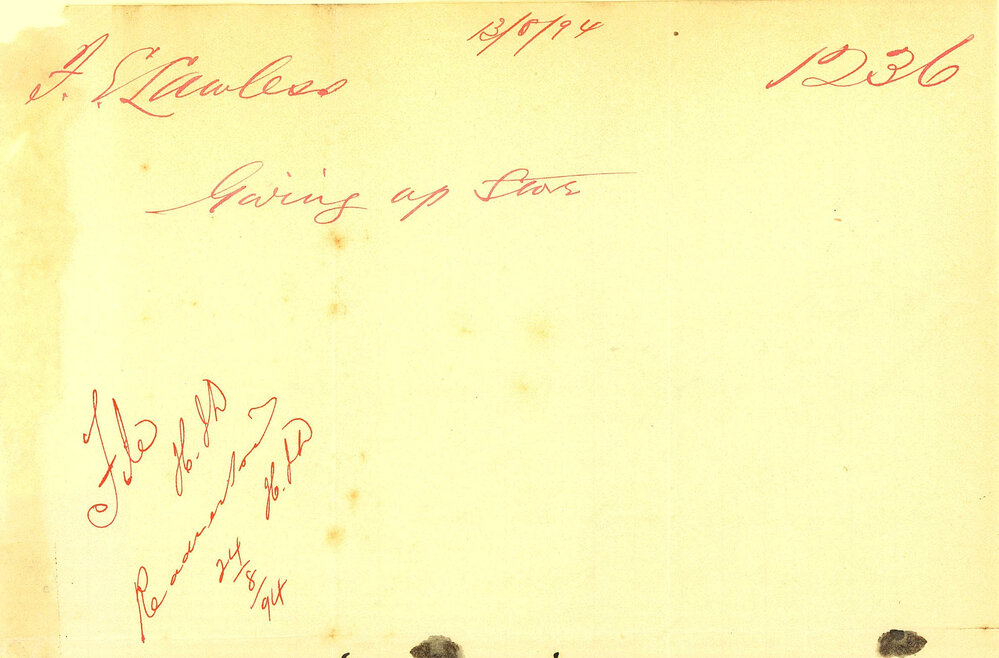 13/8/94
F. E Lawless
1236
Giving up Store
File
H. St
24/8/94